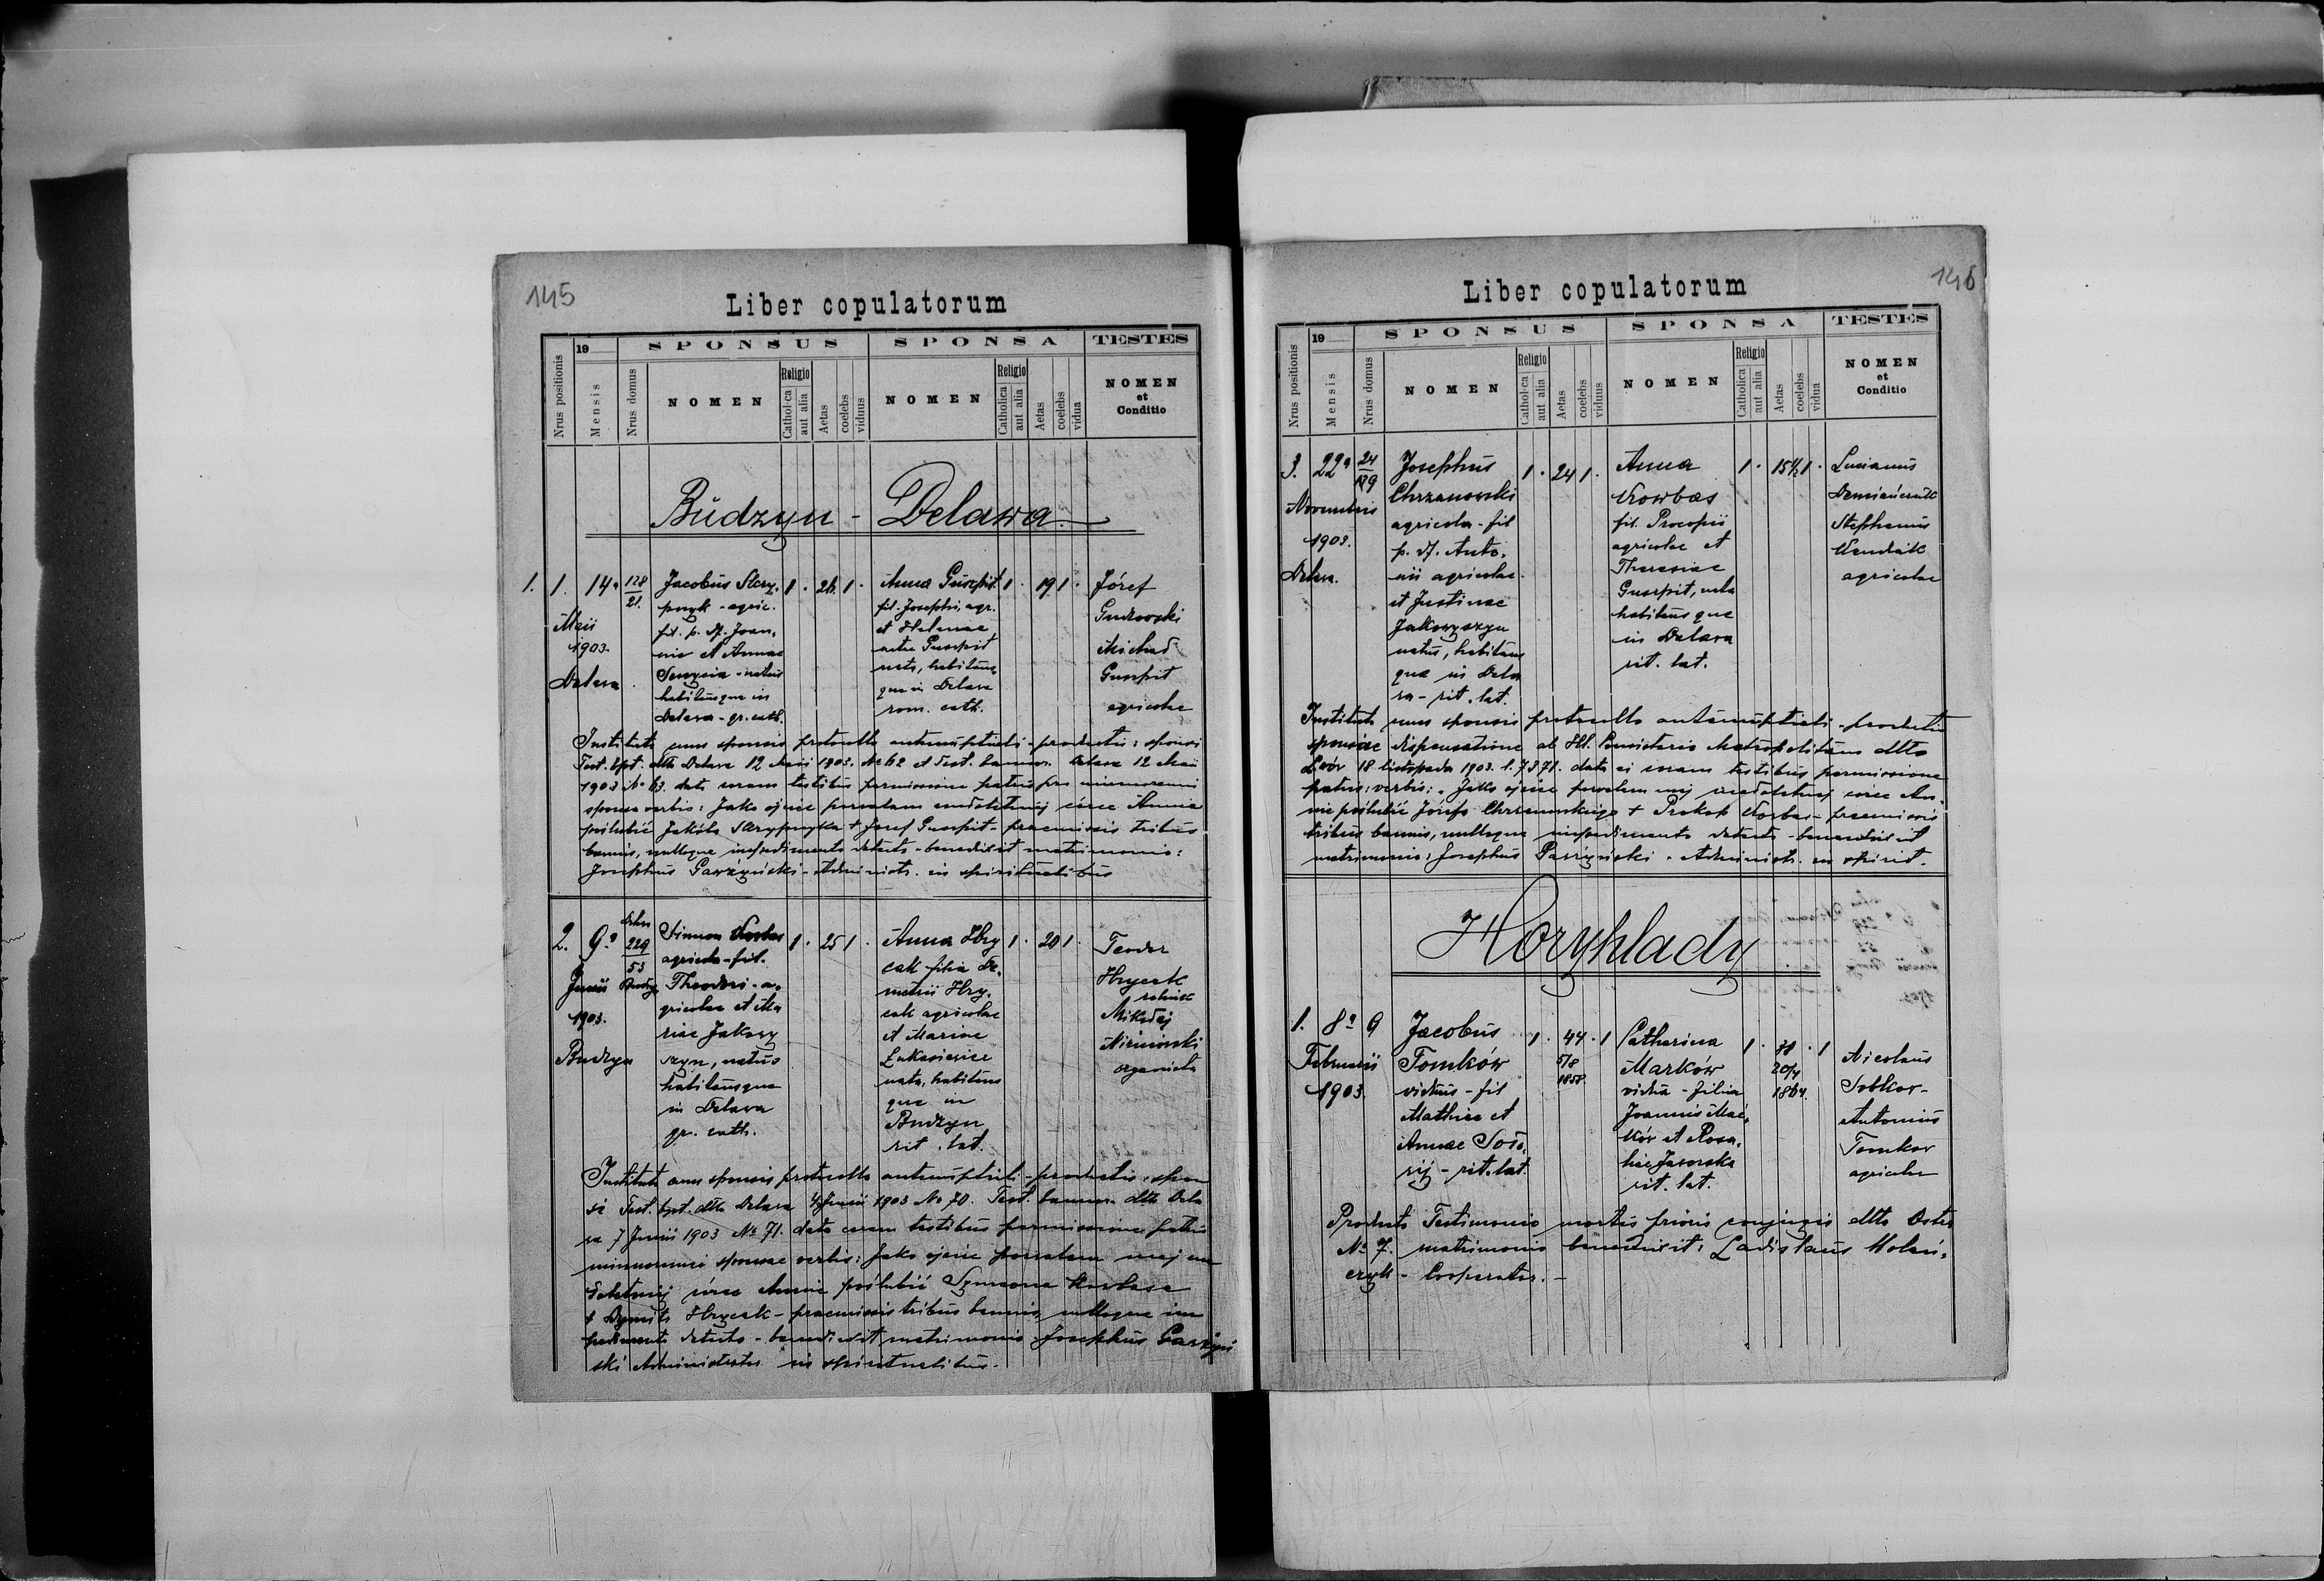 145
Liber copulatorum
Nrus positionis
19
Mensis
Nrus domus
SPONSUS
NOMEN
Religio
Catholica
aut alia
Aetas
coelebs
viduus
SPONSA
NOMEN
Religio
Catholica
aut alia
Aetas
coelebs
vidua
TESTES
NOMEN
et
Conditio
Budzyn - Delawa
1. 1. 14a 128
21.
Maii
1903.
Delawa
Jacobus Skry-
pnyk - agric.
fil. p. d. Joan-
nis et Annae
natus
habitansque in
Delawa - gr. cath.
1 . 26 1 .
Anna Gurspit
fil. Josephi, agr.
et Helenae
natae
nata, habitans
que in Delawa
rom. cath.
1 . 19 1 .
Józef
Gudzowski
Michael
agricolae
Instituto cum sponsis protocollo antenuptiali - productis: sponsi
Test. bpt. dtto Delawa 12 Maii 1903. No 62 et Test. bannor. Delawa 12 Maii
1903 No 63. data coram testibus permissione patris pro minorenni
sponsa verbis: Jako ojciec pozwalam małoletniej córce Annie
poślubić Jakóba Skrypnyka + Józef Gurspit - praemissis tribus
bannis, nulloque impedimento detecto - benedixit matrimonio:
Josephus Gawrzyński - Administr. in spiritualibus
2. 9a 229
53
Junii
1903.
Budzyn
Simeon
agricola - fil.
Theodori - a-
gricolae et Ma
riae Jakowy
szyn, natus
habitansque
in Delawa
gr. cath.
1 . 25 1 .
Anna Hry
cak filia De-
metrii Hry-
cak agricolae
et Mariae
Łukasiewicz
nata, habitans
que in
Budzyn
rit. lat.
1 . 20 1 .
Teodor
Hrycak
rolnik
Mikołaj
organista
Instituto cum sponsis protocollo antenuptiali - productis, spon
si Test. bpt. dtto Delawa 4 Junii 1903 No 70. Test. bannor. dtto Dela
wa 7 Junii 1903 No 71. data coram testibus permissione patris
minorennis sponsae verbis: Jako ojciec pozwalam mojej ma
łoletniej córce Annie poślubić Symeona
+ Dymitr Hrycak - praemissis tribus bannis, nulloque im
pedimento detecto - benedixit matrimonio Josephus Gawrzyń
ski Administrator in spiritualibus.
146
Liber copulatorum
Nrus positionis
19
Mensis
Nrus domus
SPONSUS
NOMEN
Religio
Catholica
aut alia
Aetas
coelebs
viduus
SPONSA
NOMEN
Religio
Catholica
aut alia
Aetas
coelebs
vidua
TESTES
NOMEN
et
Conditio
3. 22a 24
Novembris
1903.
Delawa.
Josephus
Chrzanowski
agricola - fil
p. d. Anto-
nii agricolae
et Justinae
Jakowyszyn
natus, habitans
que in Dela
wa - rit. lat.
1 . 24 1 .
Anna
fil. Procopii
agricolae et
Theresiae
Gurspit, nata
habitansque
in Delawa
rit. lat.
1 . 15½ 1 .
Lucianus
Stephanus
agricolae
Instituto cum sponsis protocollo antenuptiali - producta
sponsae dispensatione ab Ill. Consistorio Metropolitano dtto
Lwów 18 listopada 1903. l. 7371. data ei coram testibus permissione
patris: verbis: Jako ojciec pozwalam mej małoletniej córce An-
nie poślubić Józefa Chrzanowskiego + Prokop - praemissis
tribus bannis, nulloque impedimento detecto - benedixit
matrimonio: Josephus Gawrzyński - Administr. in spirit.
Horyhlady
1. 8a 9
Februarii
1903.
Jacobus
Tomków
viduus - fil
Mathiae et
Annae
rit. lat.
1 . 44 . 1
5/8
1858.
Catharina
Marków
vidua - filia
Joannis Mar-
ków et Rosa-
liae Jaworska
rit. lat.
1 . 38 . 1
20/4
1864.
Nicolaus
Sobkow -
Antonius
Tomkow
agricolae
Producto Testimonio mortis prioris conjugis dtto
No 7. matrimonio benedixit: Ladislaus
czyk - Cooperator. -